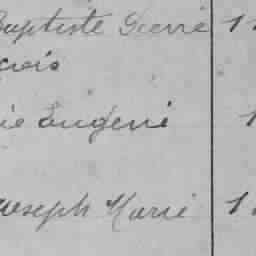 Baptiste Pierre 1
çois
ie Eugéni 1
Joseph Marie 1